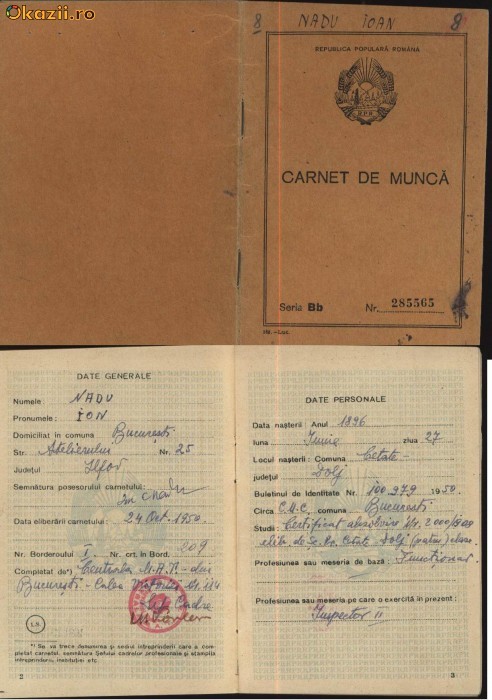 Okazii.ro
8 NADU IOAN 8
REPUBLICA POPULARĂ ROMÂNA
R P R
CARNET DE MUNCĂ
Seria Bb Nr. 285565
DATE GENERALE
Numele: NADU
Pronumele: ION
Domiciliat în comuna București
Str. Atelierului Nr. 25
Județul Ilfov
Semnătura posesorului carnetului:
Data eliberării carnetului: 24 Oct. 1950
Nr. Borderoului I. Nr. crt. în Bord. 209
Completat de*) Centrala M.A.T. din
București - Calea Nr. 124
Cadre
L.S.
*) Se va trece denumirea și sediul întreprinderii care a completat carnetul, semnătura Șefului cadrelor profesionale și ștampila întreprinderii, instituției etc.
2
DATE PERSONALE
Data nașterii: Anul 1896
luna Iunie ziua 27
Locul nașterii: Comuna Cetate -
județul Dolj
Buletinul de Identitate Nr. 100.979 1950.
Circa C.M.C. comuna București
Studii: Certificat absolvire Nr.
elib. de Sc. Cetate Dolj clase
Profesiunea sau meseria de bază: Funcționar
Profesiunea sau meseria pe care o exercită în prezent:
Inspector II
3